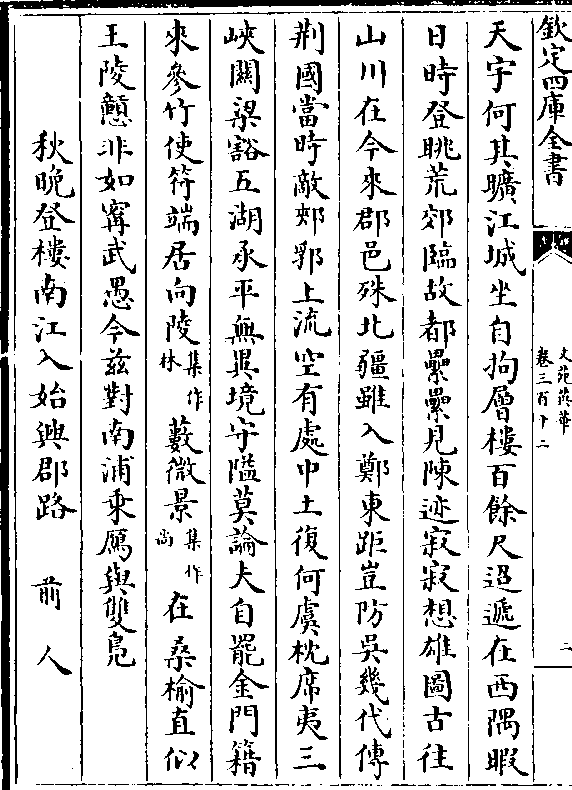 欽定四庫全書
文苑英華
卷三百十二
二
天宇何其曠江城坐自拘層樓百餘尺迢遞在西隅暇
日時登眺荒郊臨故都纍纍見陳迹寂寂想雄圖古往
山川在今來郡邑殊北疆雖入鄭東距豈防吳幾代傳
荆國當時敵郟郛上流空有處中土復何虞枕席夷三
峽關梁豁五湖承平無異境守隘莫論夫自罷金門籍
來參竹使符端居向陵集作林藪微景集作尚在桑榆直似
王陵戇非如甯武愚今兹對南浦乘鴈與雙鳬
秋晚登樓南江入始興郡路 前人